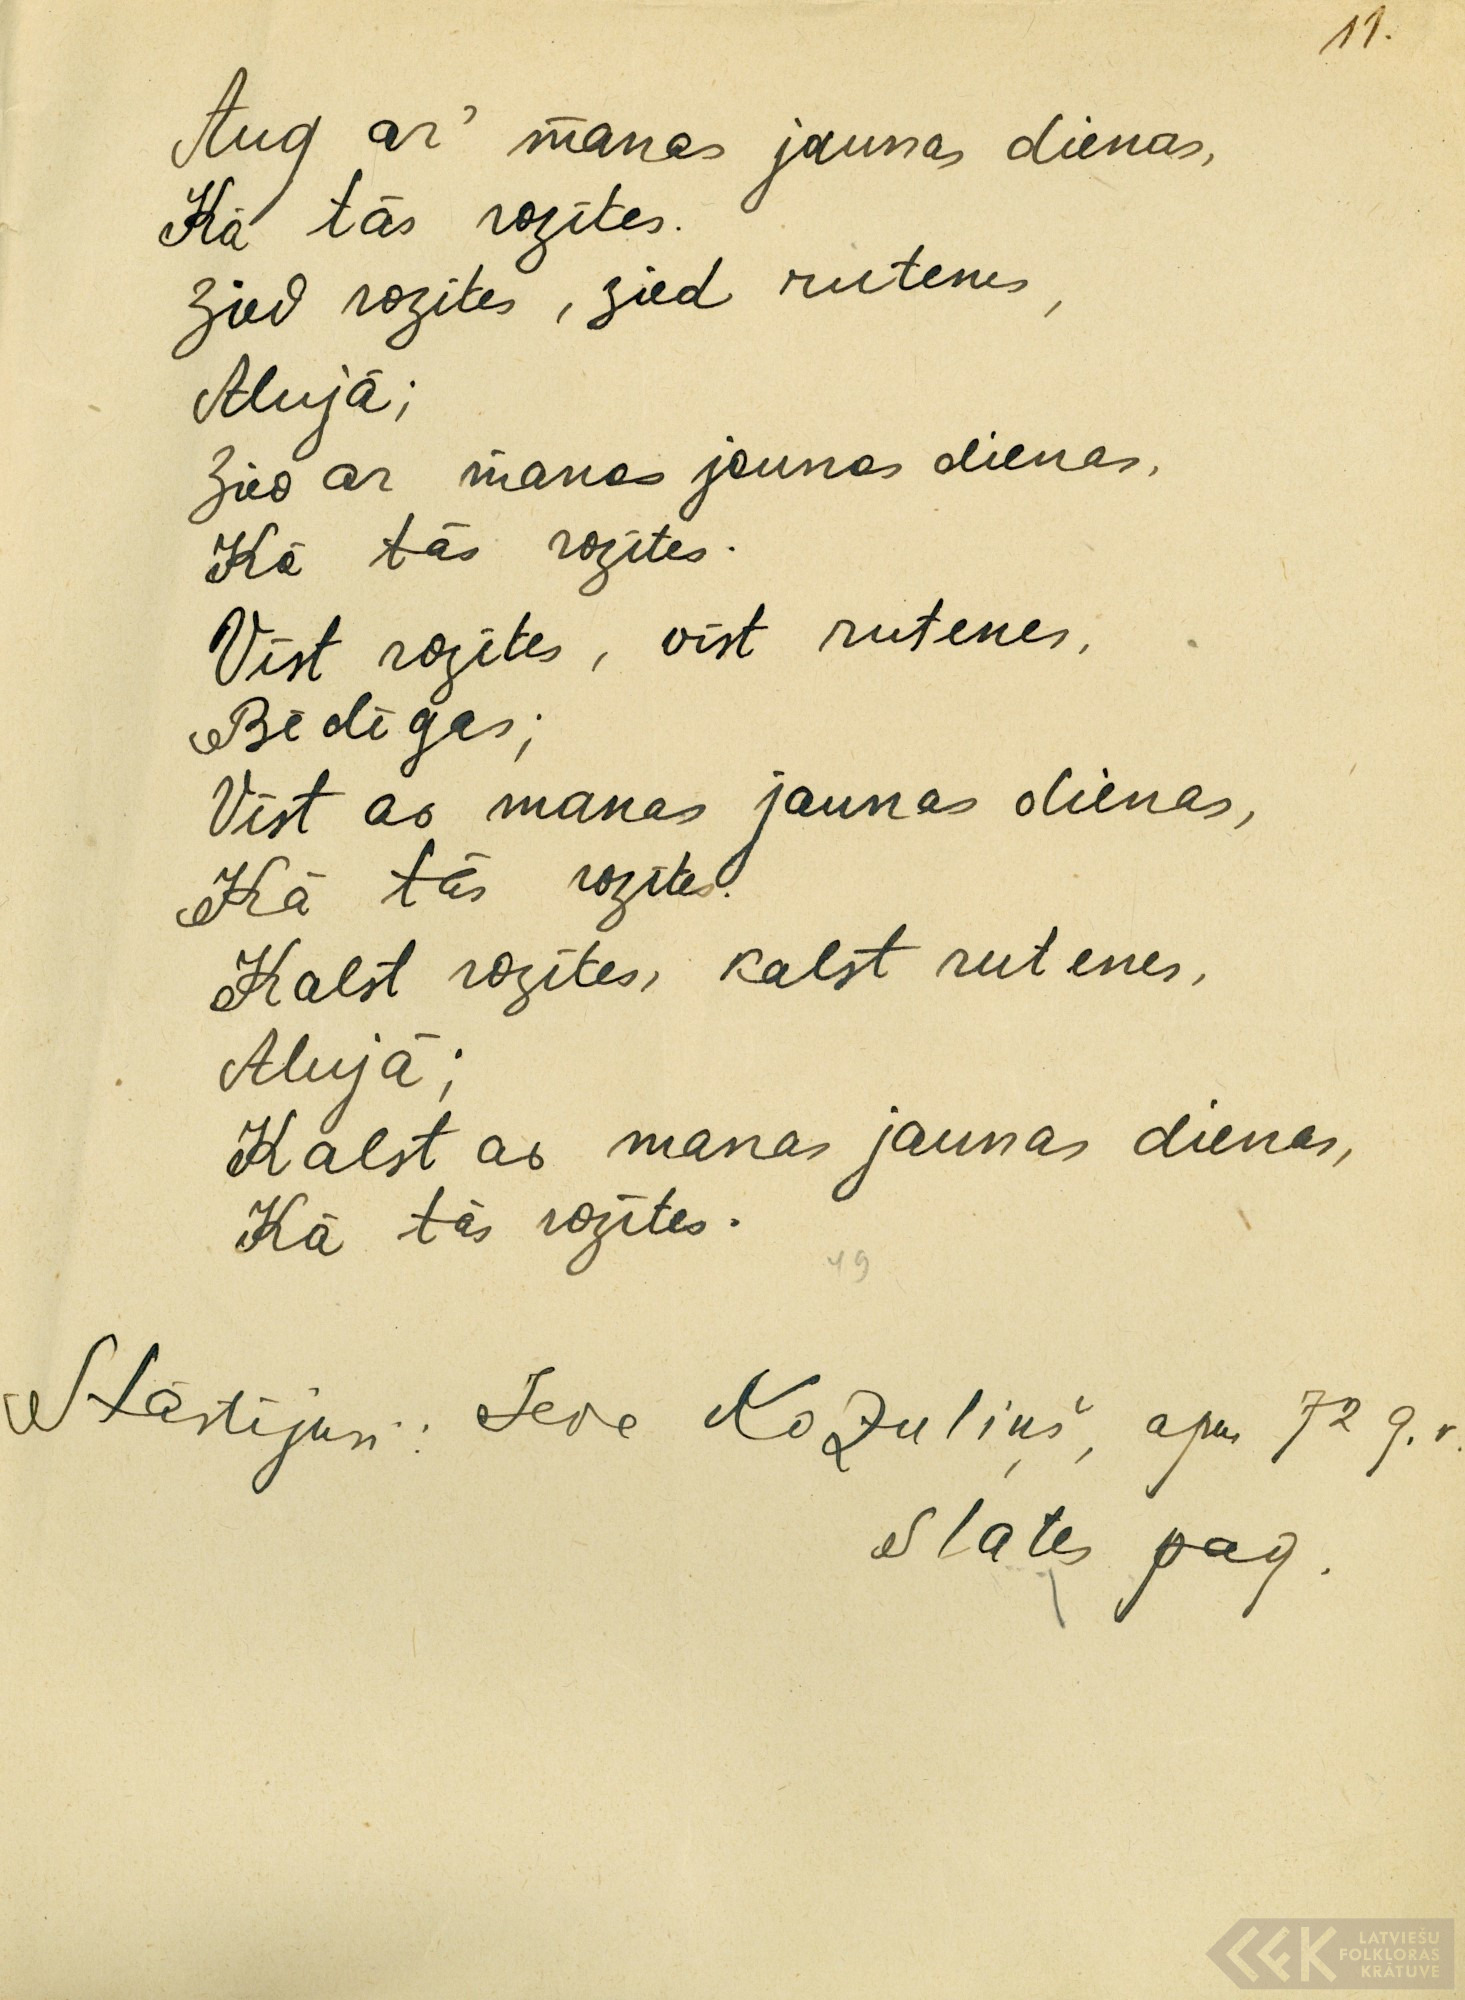 11.
Aug ar' manas jaunas dienas,
Kā tās rozītes.
Zied rozītes, zied rutenes,
Alujā;
Zied ar manas jaunas dienas,
Kā tās rozītes.
Vīst rozītes, vīst rutenes,
Bēdīgas;
Vīst ar manas jaunas dienas,
Kā tās rozītes.
Kalst rozītes, kalst rutenes,
Alujā;
Kalst ar manas jaunas dienas,
Kā tās rozītes.
49
Stāstījusi: Ieva Kozuliņš, apm 72 g. v.
Slates pag.
LATVIEŠU
FOLKLORAS
KRĀTUVE